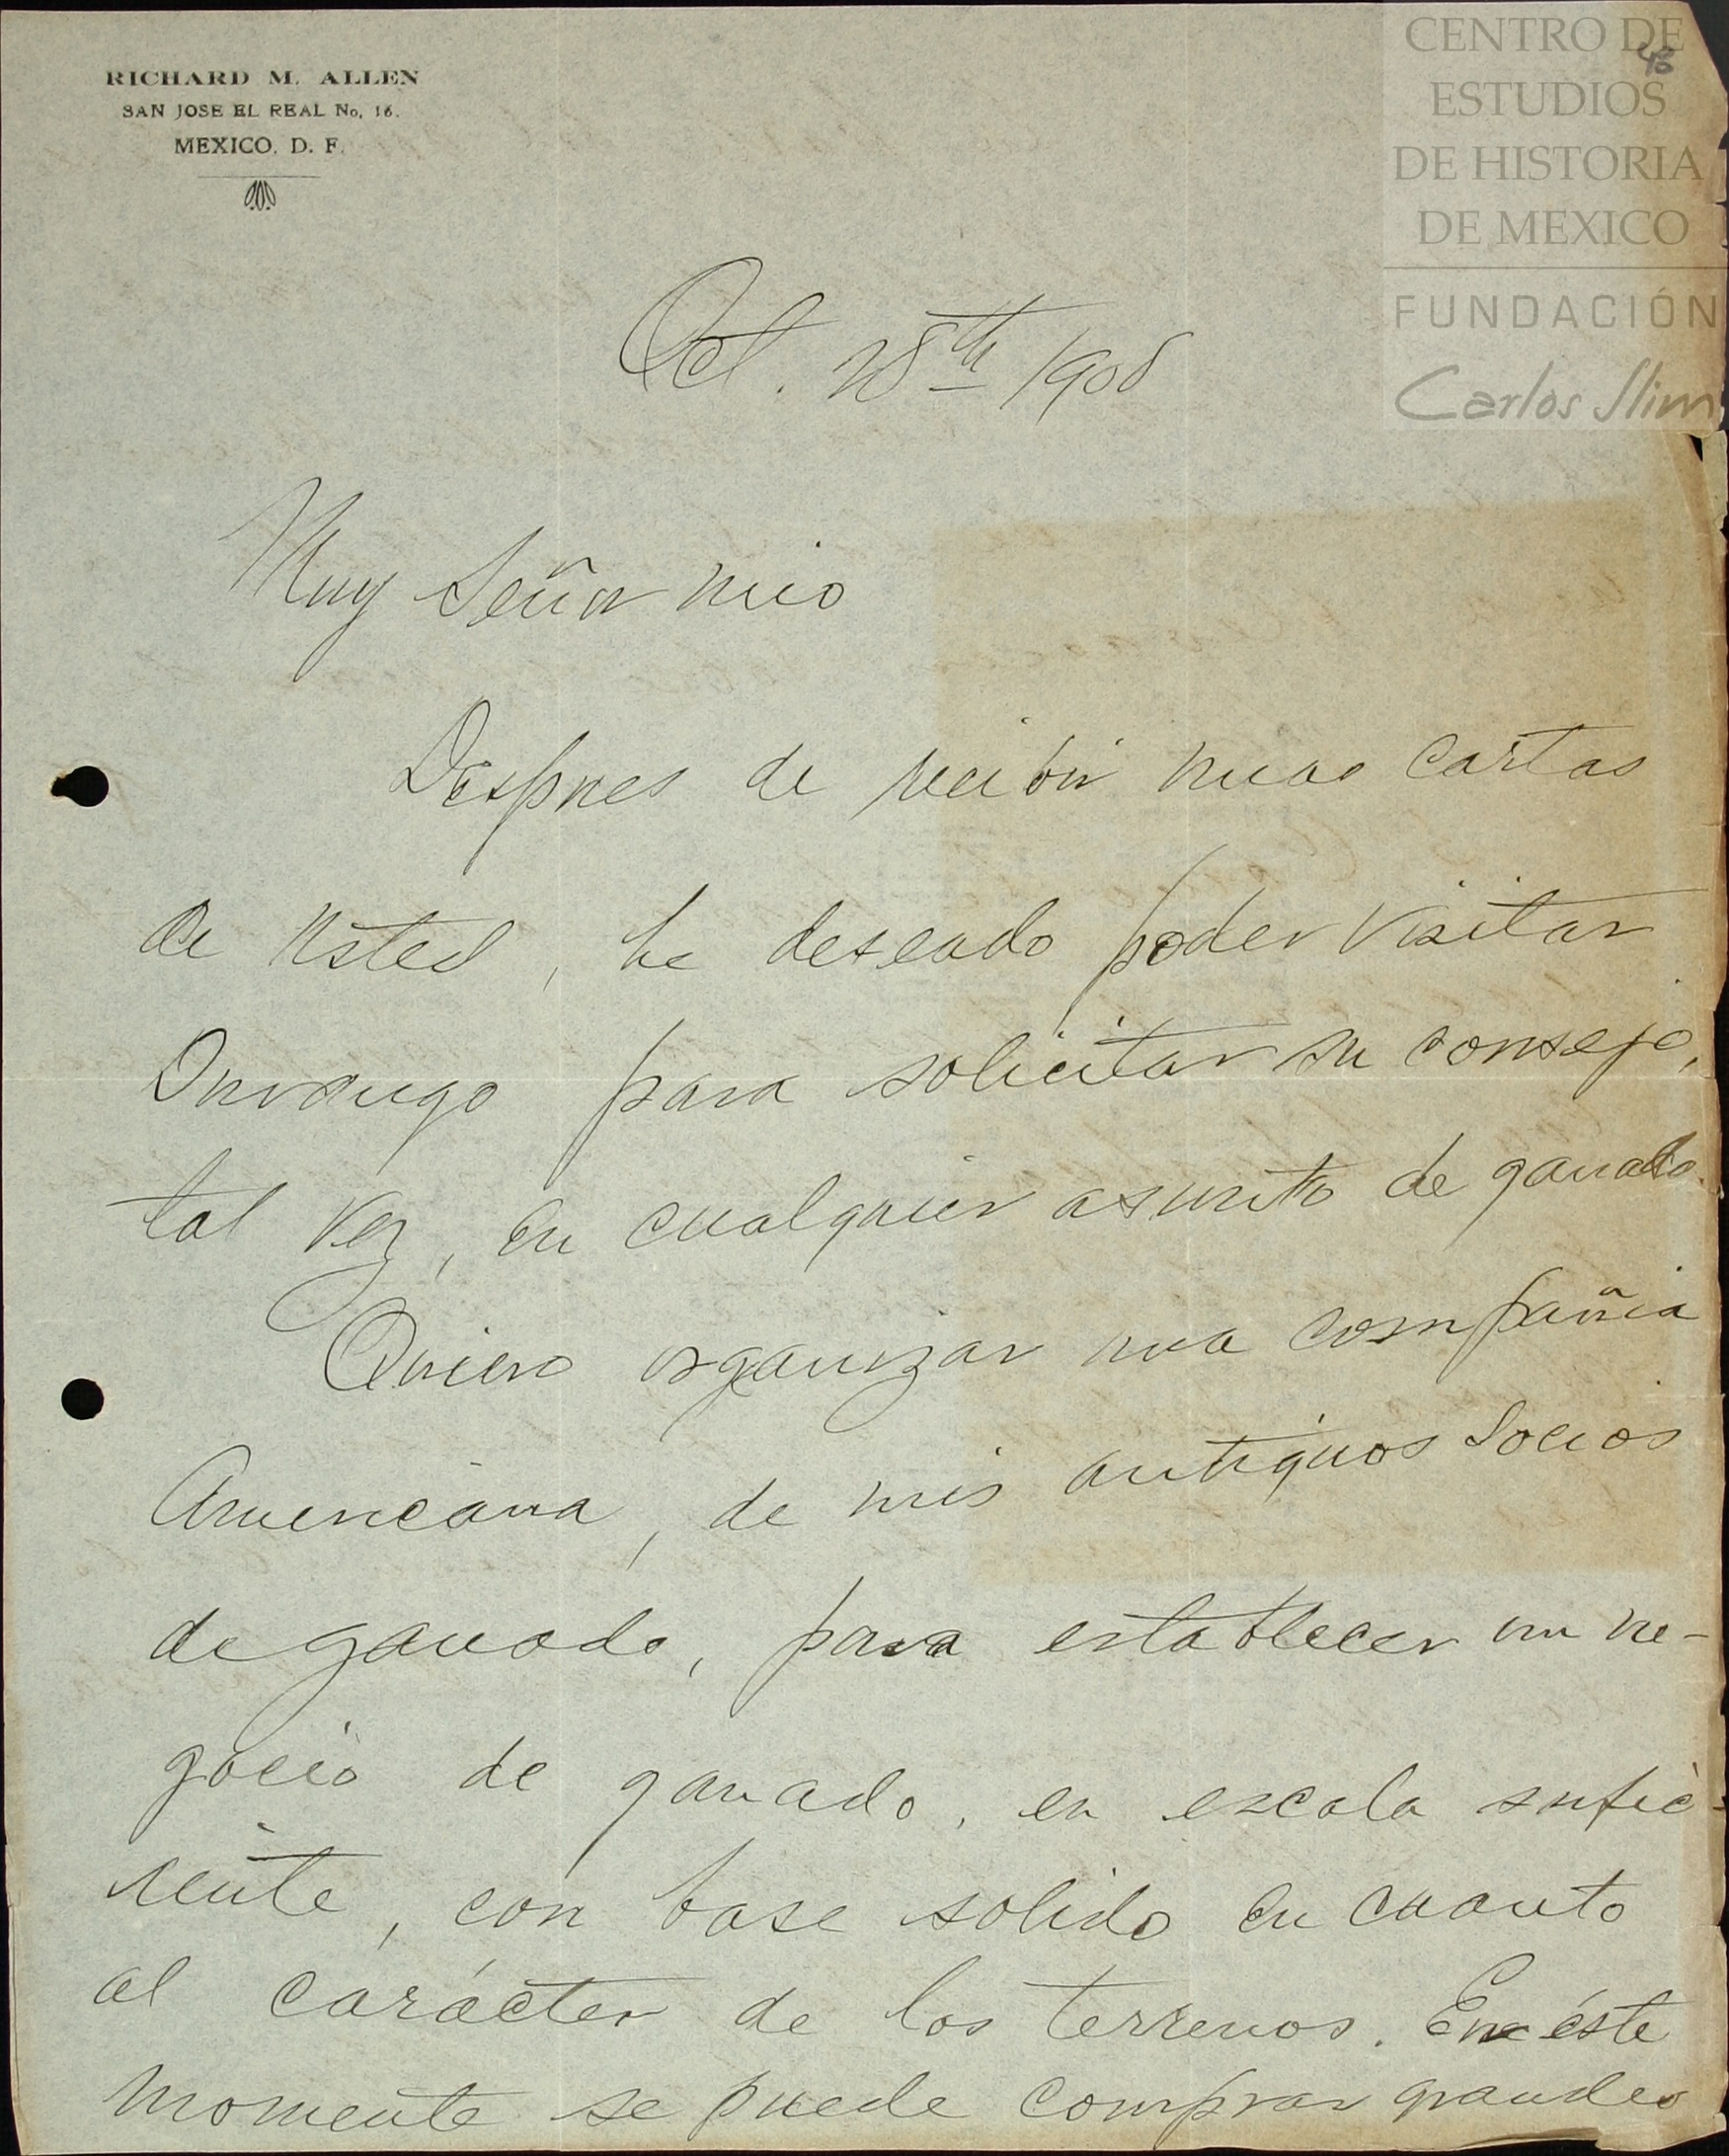 RICHARD M. ALLEN
SAN JOSE EL REAL No. 16.
MEXICO, D. F.
CENTRO DE
ESTUDIOS
DE HISTORIA
DE MEXICO
FUNDACIÓN
Carlos Slim
Oct. 28th 1908
Muy Señor mio
Despues de recibir unas cartas
de Usted, he deseado poder visitar
Durango para solicitar su consejo,
tal vez, en cualquier asunto de ganado.
Quiero organizar una compañia
Americana, de mis antiguos socios
de ganado, para establecer un ne-
gocio de ganado, en escala sufic-
iente, con base solido en cuanto
al carácter de los terrenos. En éste
momento se puede comprar grandes